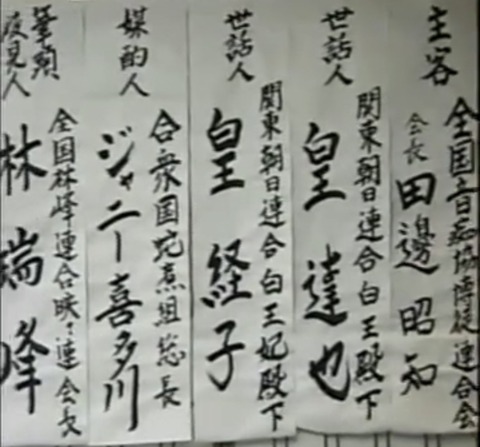 主客
全国音痴協博徒連合会
会長 田邊昭知
世話人
関東朝日連合白王殿下
皇達也
世話人
関東朝日連合白王妃殿下
皇経子
媒酌人
合衆国蛇煮組総長
ジャニー喜多川
筆頭
後見人
全国林峰連合映々連会長
林瑞峰